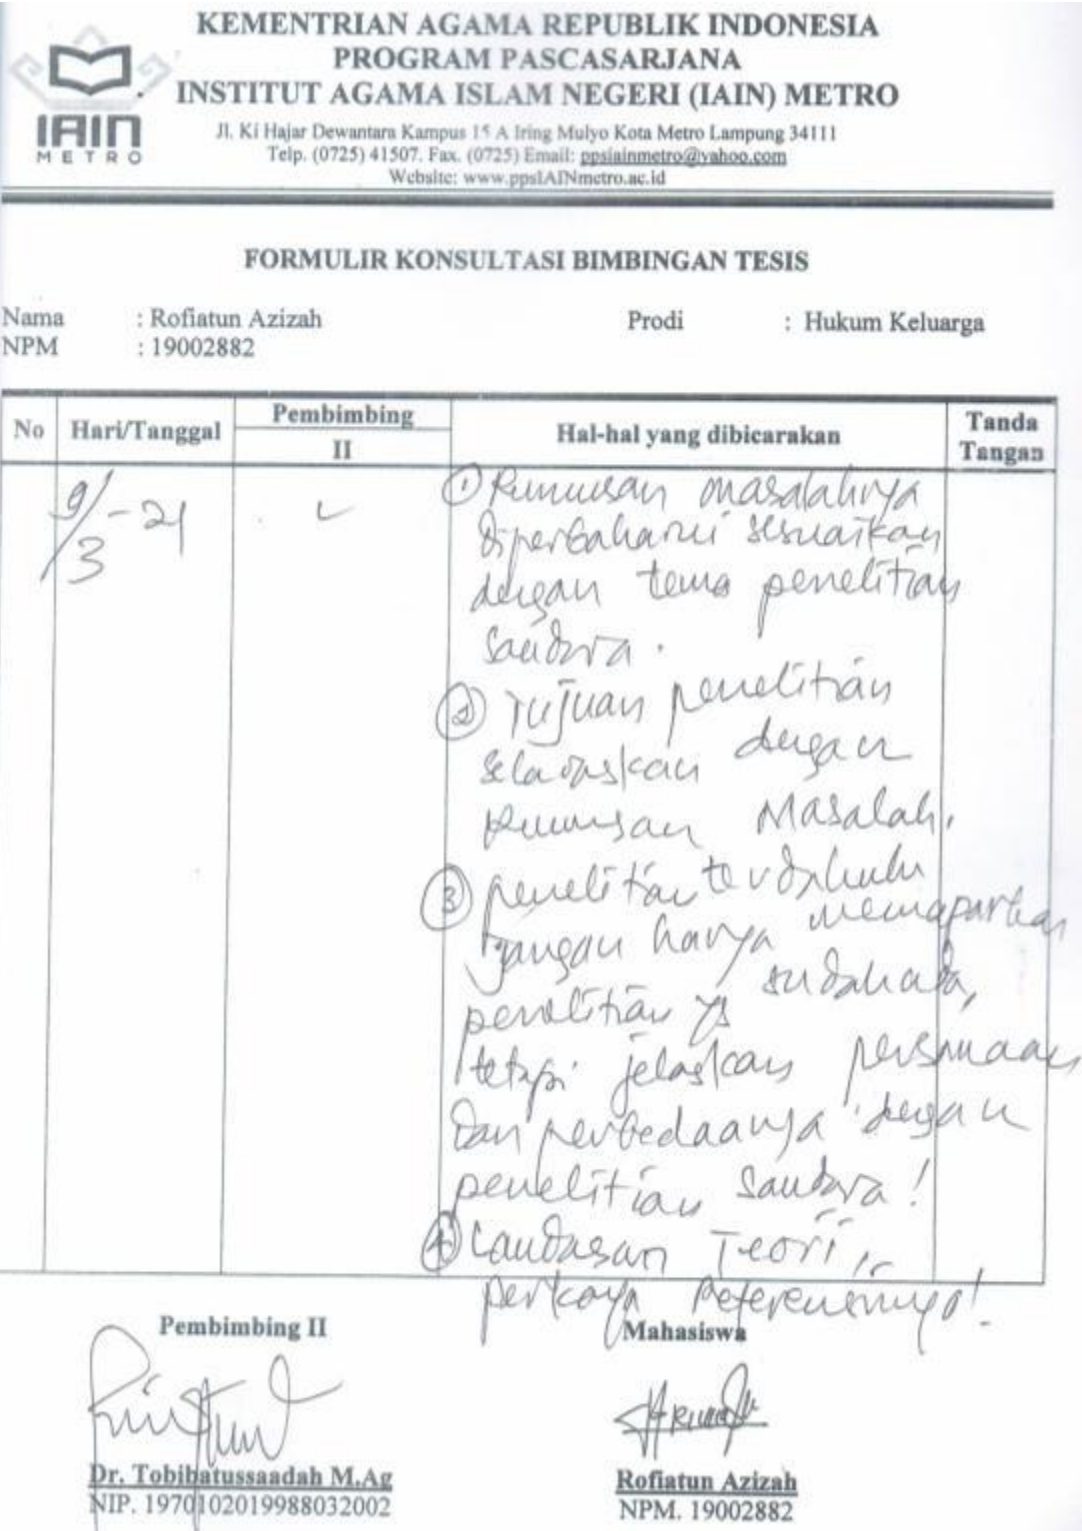 KEMENTRIAN AGAMA REPUBLIK INDONESIA
PROGRAM PASCASARJANA
INSTITUT AGAMA ISLAM NEGERI (IAIN) METRO
IAIN
METRO
Jl. Ki Hajar Dewantara Kampus 15 A Iring Mulyo Kota Metro Lampung 34111
Telp. (0725) 41507. Fax. (0725) Email: ppsiainmetro@yahoo.com
Website: www.ppsIAINmetro.ac.id
FORMULIR KONSULTASI BIMBINGAN TESIS
Nama : Rofiatun Azizah Prodi : Hukum Keluarga
NPM : 19002882
No Hari/Tanggal Pembimbing II Hal-hal yang dibicarakan Tanda Tangan
9/3 -21
① Rumusan masalahnya
diperbaharui sesuaikan
dengan tema penelitian
saudara.
② Tujuan penelitian
selaraskan dengan
Rumusan Masalah.
③ penelitian terdahulu
jangan hanya memaparkan
penelitian yg sudah ada,
tetapi jelaskan persamaan
dan perbedaanya dengan
penelitian saudara!
④ Landasan Teori,
perkaya Referensinya!
Pembimbing II Mahasiswa
Dr. Tobibatussaadah M.Ag Rofiatun Azizah
NIP. 1970102019988032002 NPM. 19002882